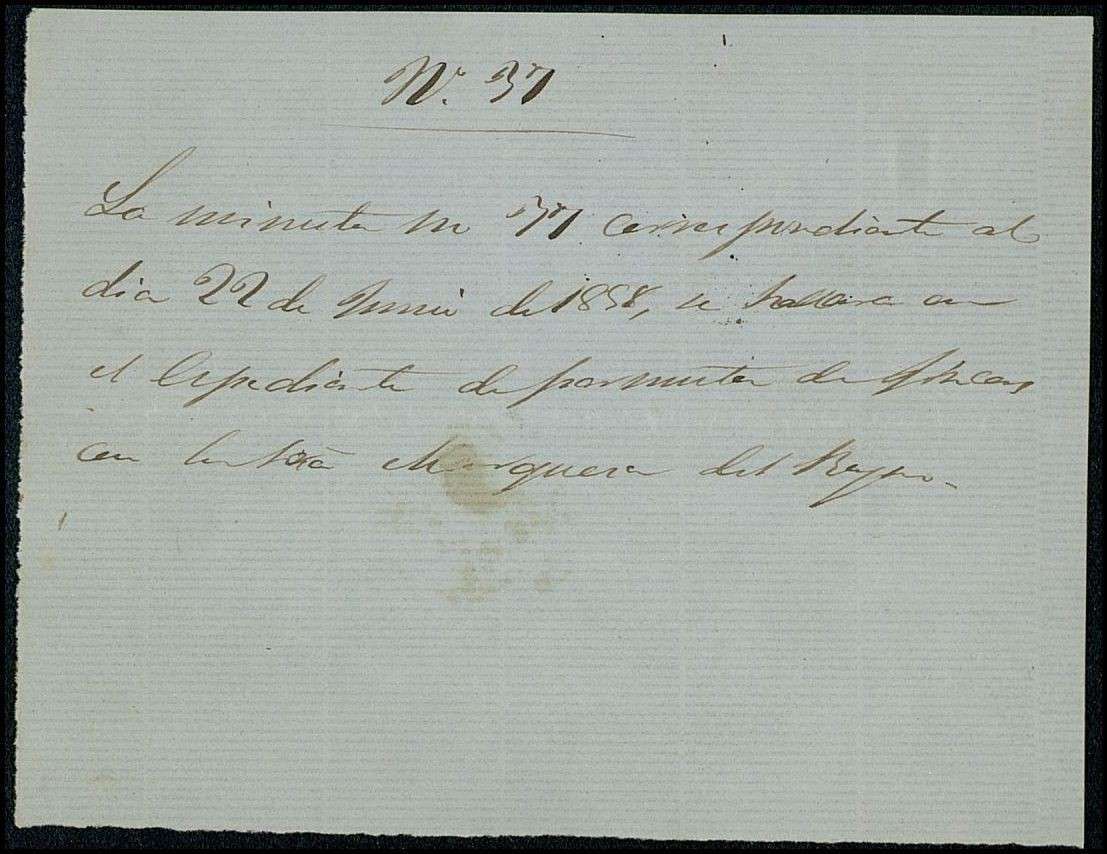 N.º 37
La minuta nº 37 correspondiente al
dia 22 de Junio de 1858, se hallara en
el Espediente de permuta de fincas
con la Srā Marquesa del